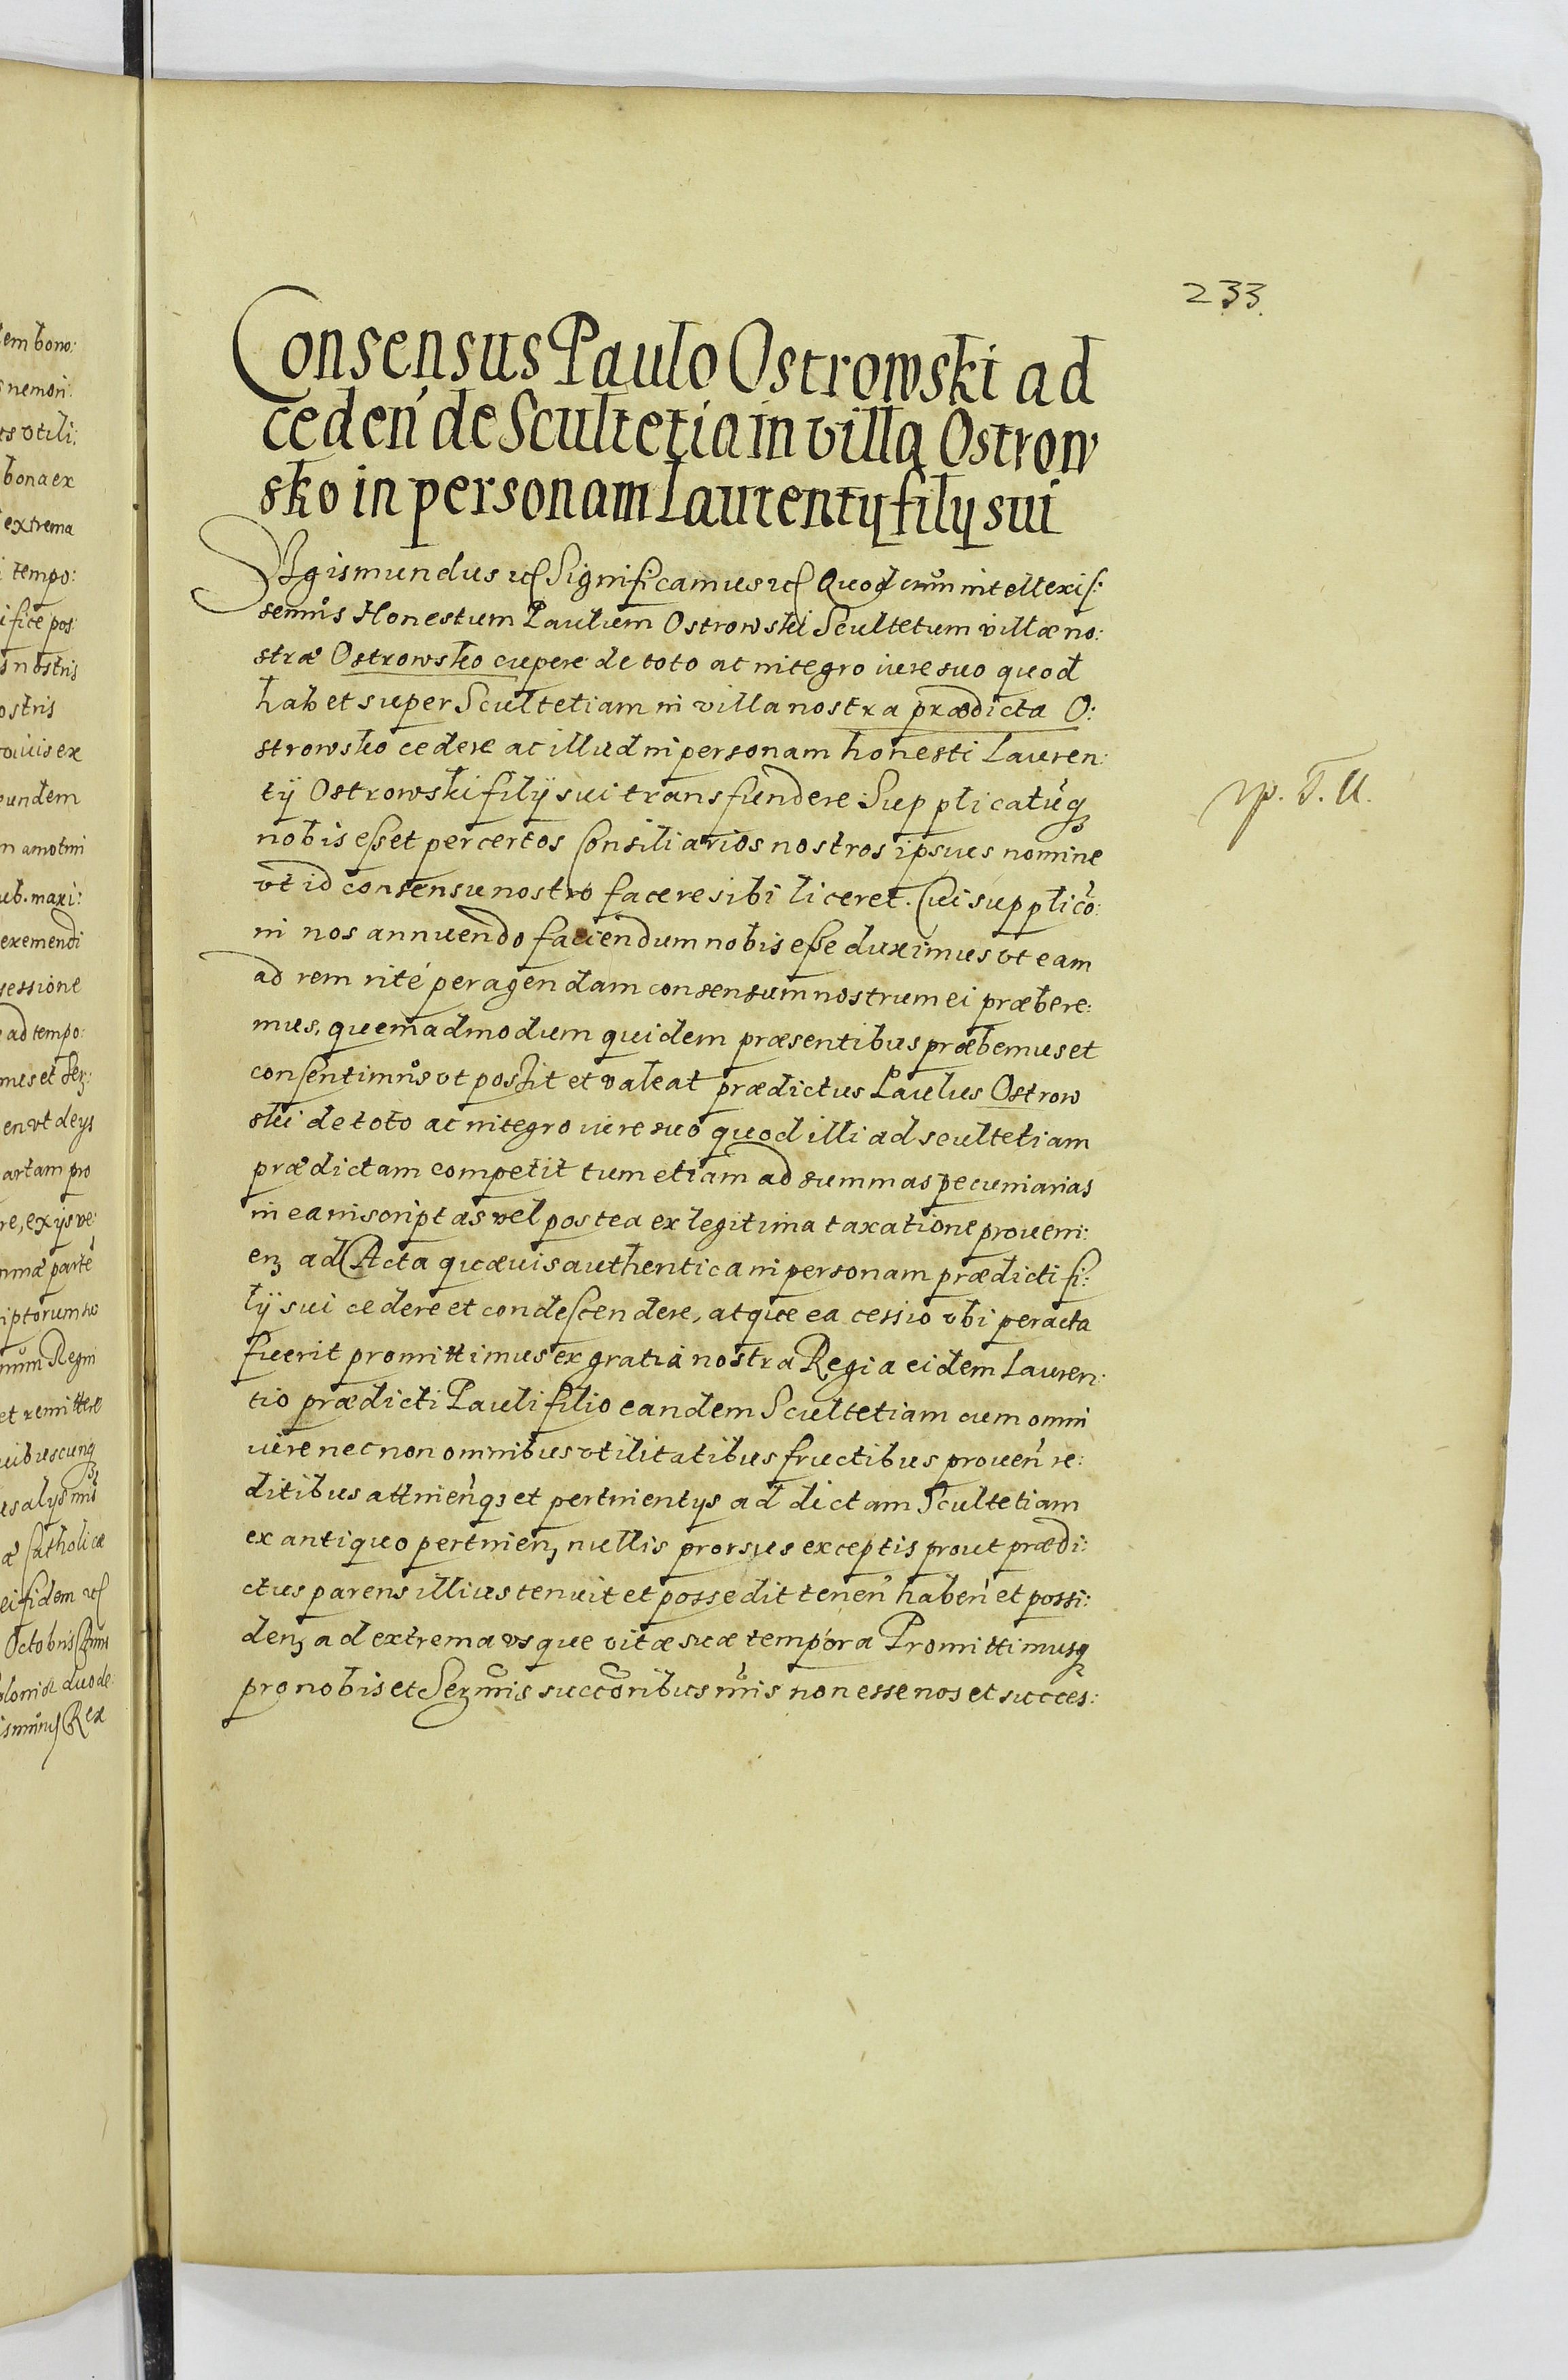 233.
Consensus Paulo Ostrowski ad
ceden̄ de Scultetia in villa Ostrow
sko in personam Laurentij filij sui
Sigismundus etc Significamus etc Quod cum intellexis:
semus Honestum Paulum Ostrowski Scultetum villæ no:
stræ Ostrowsko cupere de toto ac integro iure suo quod
habet super Scultetiam in villa nostra prædicta O:
strowsko cedere ac illud in personam honesti Lauren:
tij Ostrowski filij sui transfundere. Supplicatūq
nobis esset per certos Consiliarios nostros ipsius nomine
vt id consensu nostro facere sibi liceret. Cui supplicō:
ni nos annuendo faciendum nobis esse duximus vt eam
ad rem rité peragendam consensum nostrum ei præbere:
mus, quemadmodum quidem præsentibus præbemus et
consentimus vt possit et valeat prædictus Paulus Ostrow
ski de toto ac integro iure suo quod illi ad scultetiam
prædictam competit tum etiam ad summas pecuniarias
in ea inscriptas vel postea ex legitima taxatione proueni:
enʒ ad Acta quæuis authentica in personam prædicti fi:
lij sui cedere et condescendere, atque ea cessio vbi peracta
fuerit promittimus ex gratia nostra Regia eidem Lauren:
tio prædicti Pauli filio eandem Scultetiam cum omni
iure nec non omnibus vtilitatibus fructibus prouen̄ re:
ditibus attinen̄qʒ et pertinentijs ad dictam Scultetiam
ex antiquo pertinenʒ nullis prorsus exceptis prout prædi:
ctus parens illius tenuit et possedit tenen̄ haben̄ et possi:
denʒ ad extrema vsque vitæ suæ tempora Promittimusq
pro nobis et Serm̄is succōribus nr̄is non esse nos et succes: